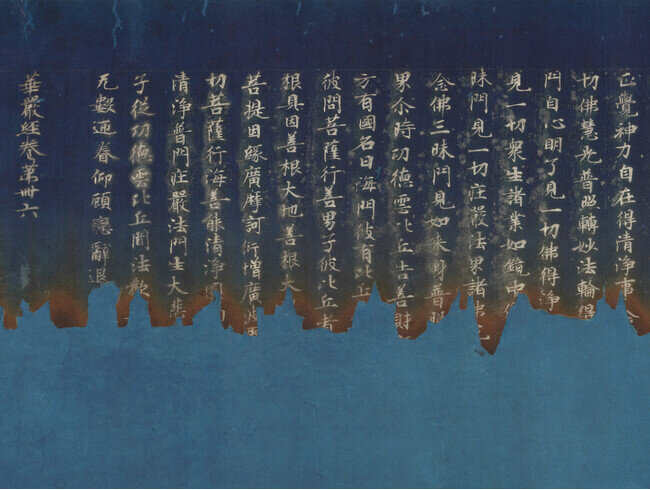 正覺神力自在得清淨
切佛慧光普照轉妙法輪得
門自心明了見一切佛得淨
見一切衆生諸業如鏡中
昧門見一切莊嚴法界諸
念佛三昧門見如來身普照
界尒時功德雲比丘告善財
方有國名曰海門彼有比丘
彼問菩薩行善男子彼比丘者
根具因善根大地善根大
菩提因緣廣摩訶衍增廣
切菩薩行海善能清淨
清淨普門莊嚴法門士大悲
子從功德雲比丘聞法歡
无數迊眷仰願戀辭退
華嚴經卷第卅六